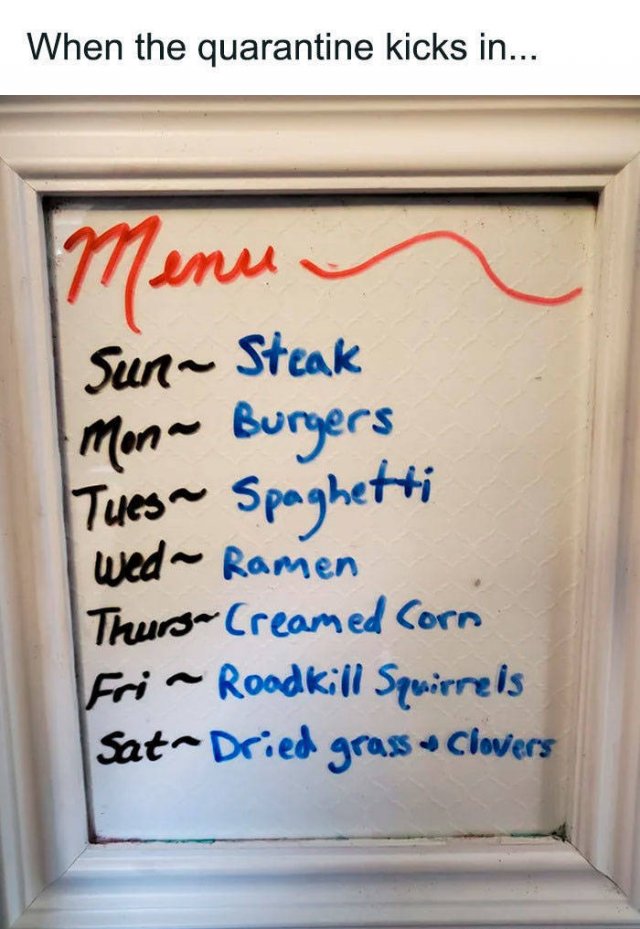 When the quarantine kicks in...
Menu
Sun~ Steak
Mon~ Burgers
Tues~ Spaghetti
Wed~ Ramen
Thurs~ Creamed Corn
Fri ~ Roadkill Squirrels
Sat~ Dried grass + Clovers